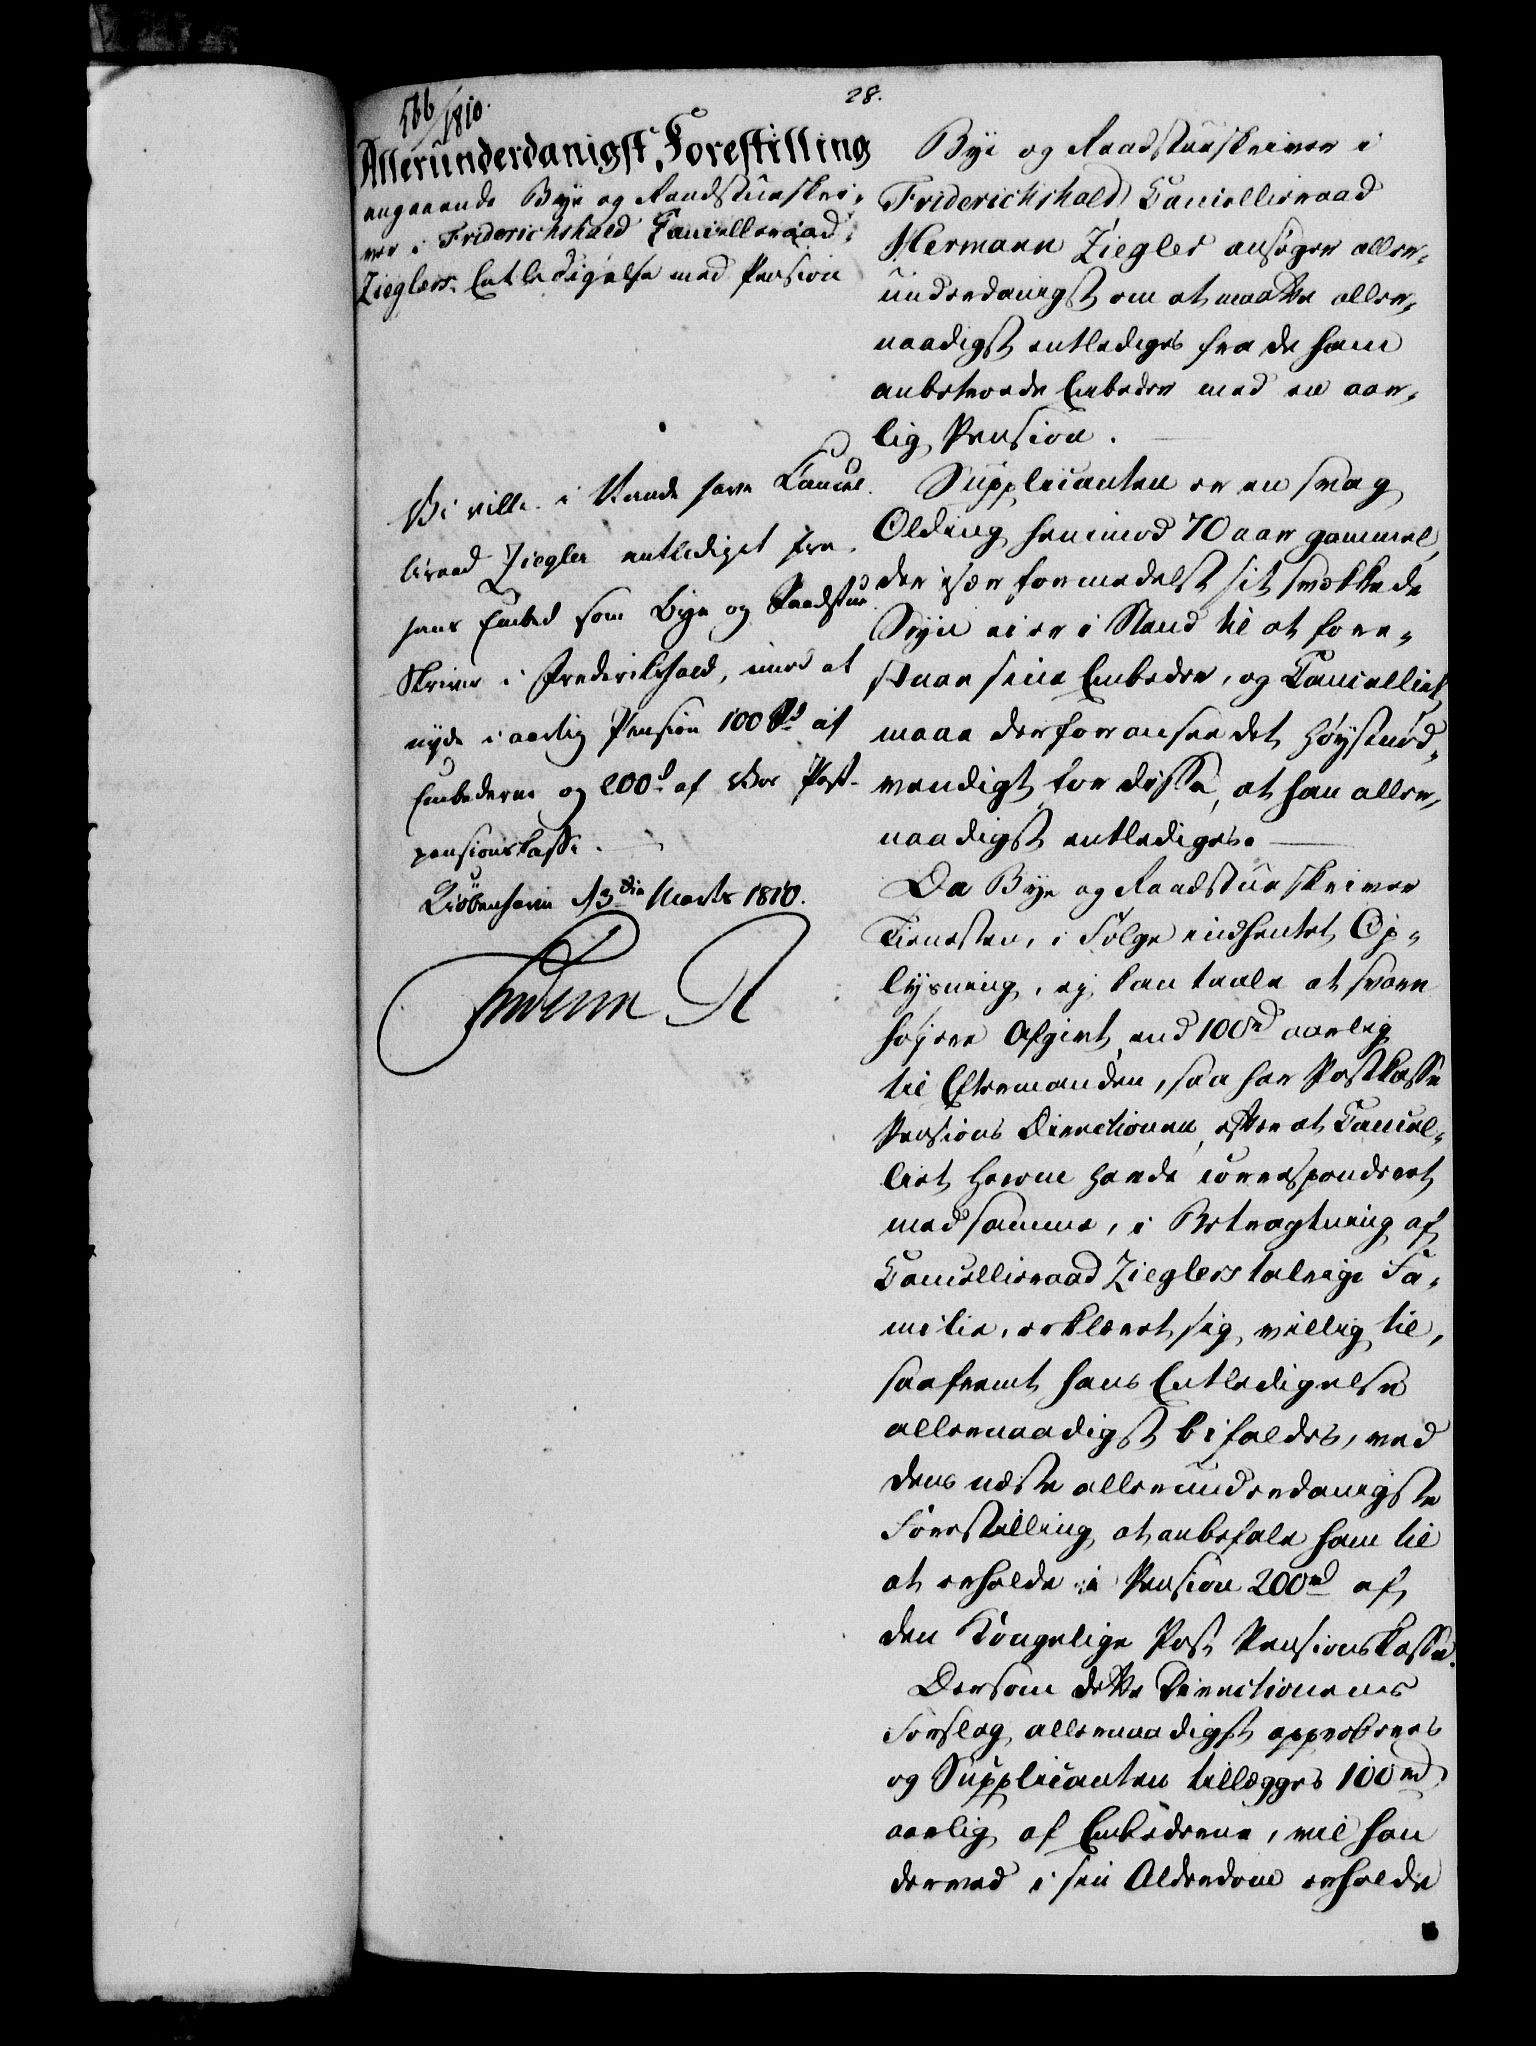 28.
566/1810.
Allerunderdanigst Forestilling
angaaende Bye og Raadstueskri-
ver i Friderichshald Cancelleraad
Zieglers Entledigelse med Pension
Vi ville i Naade have Cancel-
lieraad Ziegler entlediget fra
hans Embed som Bye og Raadstue
Skriver i Frederikshald, imod at
nyde i aarlig Pension 100 Rd af
Embederne og 200 d af Vor Post-
pensionskasse.
Kiöbenhavn d 3die Marts 1810.
Frederik R
Bye og Raadstueskriver i
Friderichshald Cancellieraad
Hermann Ziegler ansøger aller-
underdanigst om at maatte aller-
naadigst entlediges fra de ham
anbetroede Embeder med en aar-
lig Pension.
Supplicanten er en svag
Olding henimod 70 aar gammel,
der især formedelst sit svækkede
Syn ei er i Stand til at fore-
staae sine Embeder, og Cancelliet
maae derfor ansee det høystnød-
vendigt for disse, at han aller-
naadigst entlediges.
Da Bye og Raadstueskriver
Tienesten, i Følge indhentet Op-
lysning, ej kan taale at svare
højere Afgivt end 100 rd aarlig
til Eftermanden, saa har Postkasse
Pensions Directionen, efter at Cancel-
liet herom havde corresponderet
med samme, i Betragtning af
Cancellieraad Zieglers talrige Fa-
milie, erklæret sig villig til,
saafremt hans Entledigelse
allernaadigst bifaldes, ved
dens næste allerunderdanigste
Forestilling at anbefale ham til
at erholde i Pension 200 rd af
den Kongelige Post Pensionskasse.
Dersom dette Directionens
Forslag allernaadigst approberes
og Supplicanten tillægges 100 rd
aarlig af Embederne, vil han
derved i sin Alderdom erholde